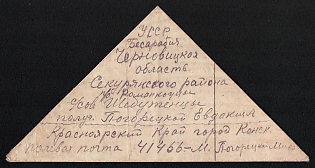 УССР
Бесарабия
Черновицкая
область
Секурянского района
с. Романкоуцы
Усов
получ. Погорецкой Евдокия
Красноярский Край город Канск
полевая почта 41466-М. Погорецкий